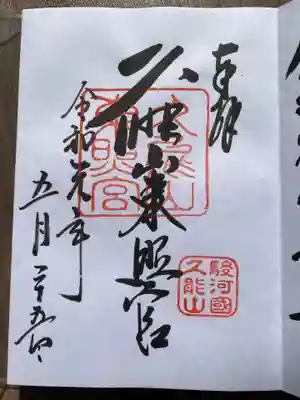 奉拝
久能山東照宮
久能山
東照宮
駿河國
久能山
令和元年
五月二十五日